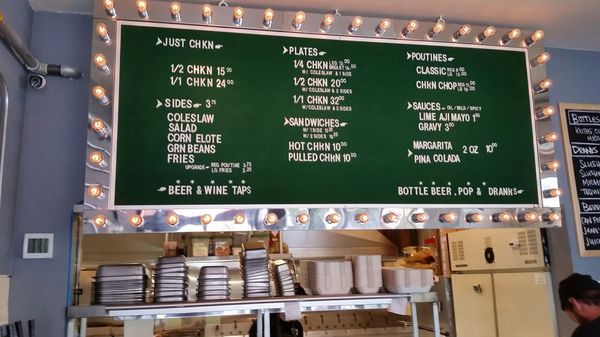 JUST CHKN
1/2 CHKN 15 00
1/1 CHKN 24 00
SIDES 3 75
COLESLAW
SALAD
CORN ELOTE
GRN BEANS
FRIES
UPGRADE REG POUTINE 3 75
LG FRIES 2 25
BEER & WINE TAPS
PLATES
1/4 CHKN
W/ COLESLAW & 1 SIDE
1/2 CHKN 20 00
W/ COLESLAW & 2 SIDES
1/1 CHKN 32 00
W/ COLESLAW & 3 SIDES
SANDWICHES
W/ 1 SIDE
W/ 2 SIDES
HOT CHKN 10 00
PULLED CHKN 10 00
POUTINES
CLASSIC
CHRN CHOP
SAUCES - OIL / MILD / SPICY
LIME AJI MAYO 1 00
GRAVY 3 00
MARGARITA 2 OZ 10 00
PINA COLADA
BOTTLE BEER, POP & DRANKS
BOTTLES
DRANKS